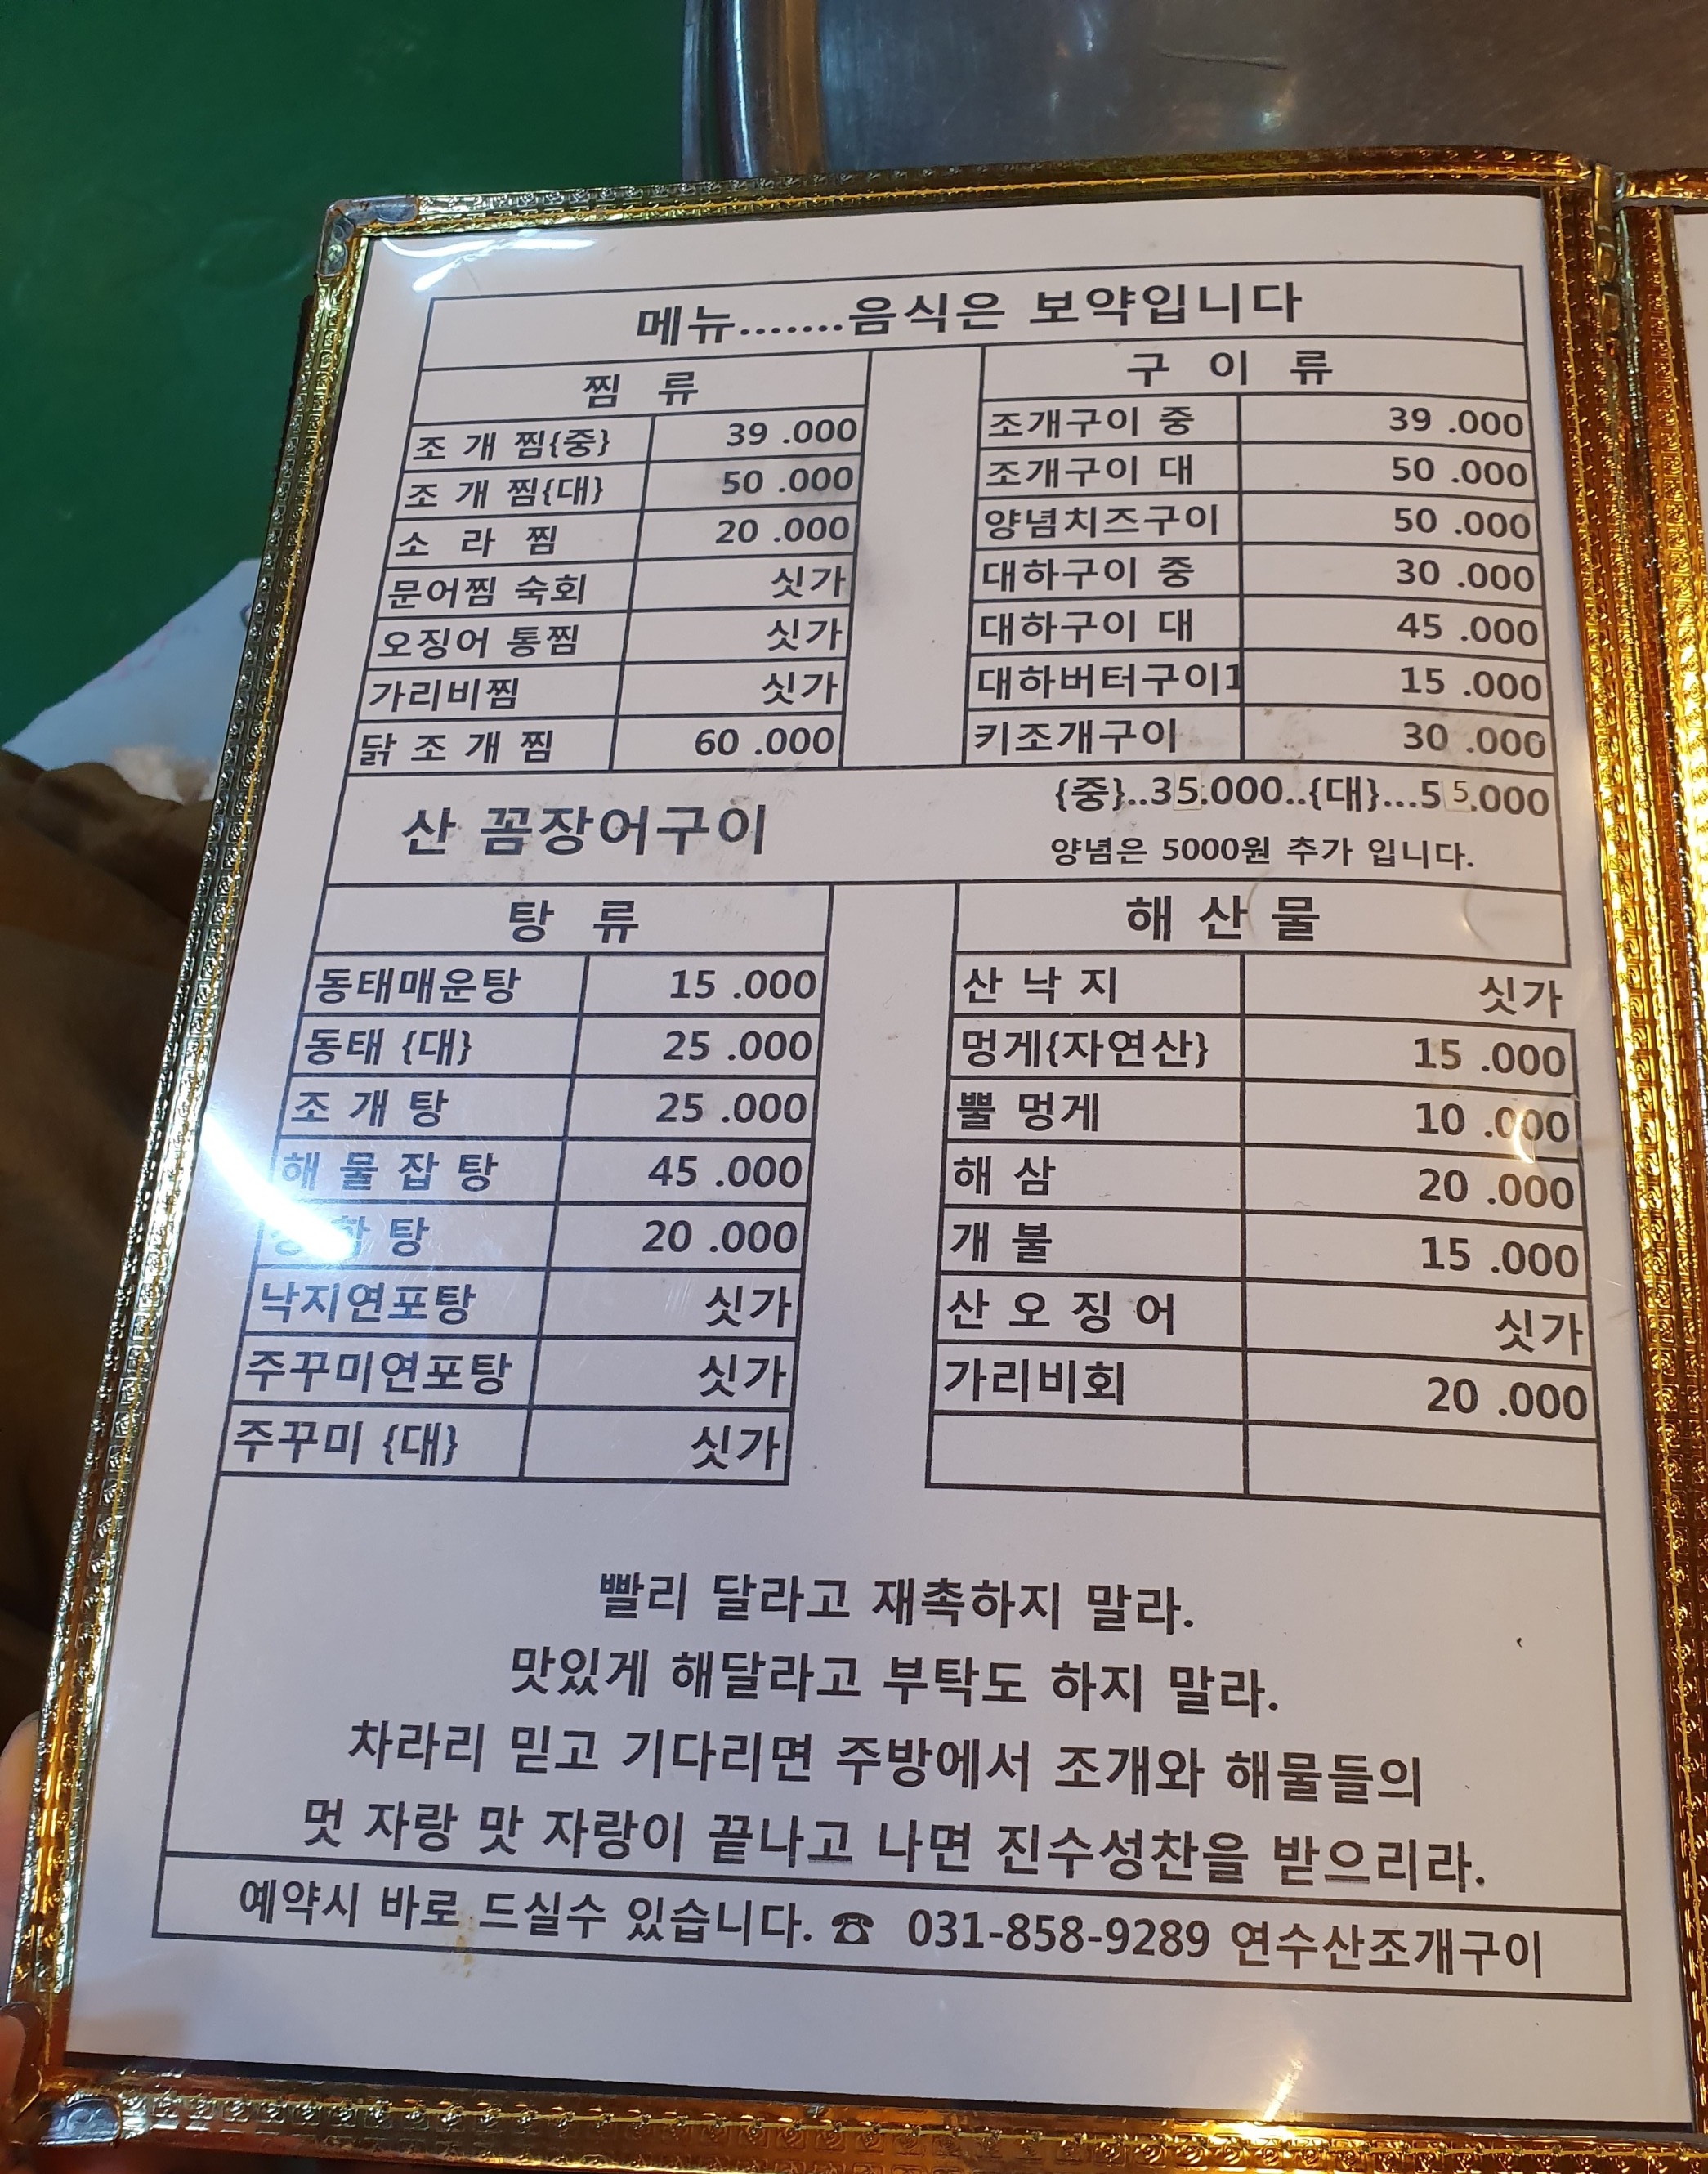 메뉴.......음식은 보약입니다
찜 류
조 개 찜{중} 39 .000
조 개 찜{대} 50 .000
소 라 찜 20 .000
문어찜 숙회 싯가
오징어 통찜 싯가
가리비찜 싯가
닭 조 개 찜 60 .000
구 이 류
조개구이 중 39 .000
조개구이 대 50 .000
양념치즈구이 50 .000
대하구이 중 30 .000
대하구이 대 45 .000
대하버터구이1 15 .000
키조개구이 30 .000
산 꼼장어구이 {중}..35.000..{대}...55.000
양념은 5000원 추가 입니다.
탕 류
동태매운탕 15 .000
동태 {대} 25 .000
조 개 탕 25 .000
해 물 잡 탕 45 .000
탕 20 .000
낙지연포탕 싯가
주꾸미연포탕 싯가
주꾸미 {대} 싯가
해 산 물
산 낙 지 싯가
멍게{자연산} 15 .000
뿔 멍게 10 .000
해 삼 20 .000
개 불 15 .000
산 오 징 어 싯가
가리비회 20 .000
빨리 달라고 재촉하지 말라.
맛있게 해달라고 부탁도 하지 말라.
차라리 믿고 기다리면 주방에서 조개와 해물들의
멋 자랑 맛 자랑이 끝나고 나면 진수성찬을 받으리라.
예약시 바로 드실수 있습니다. ☎ 031-858-9289 연수산조개구이